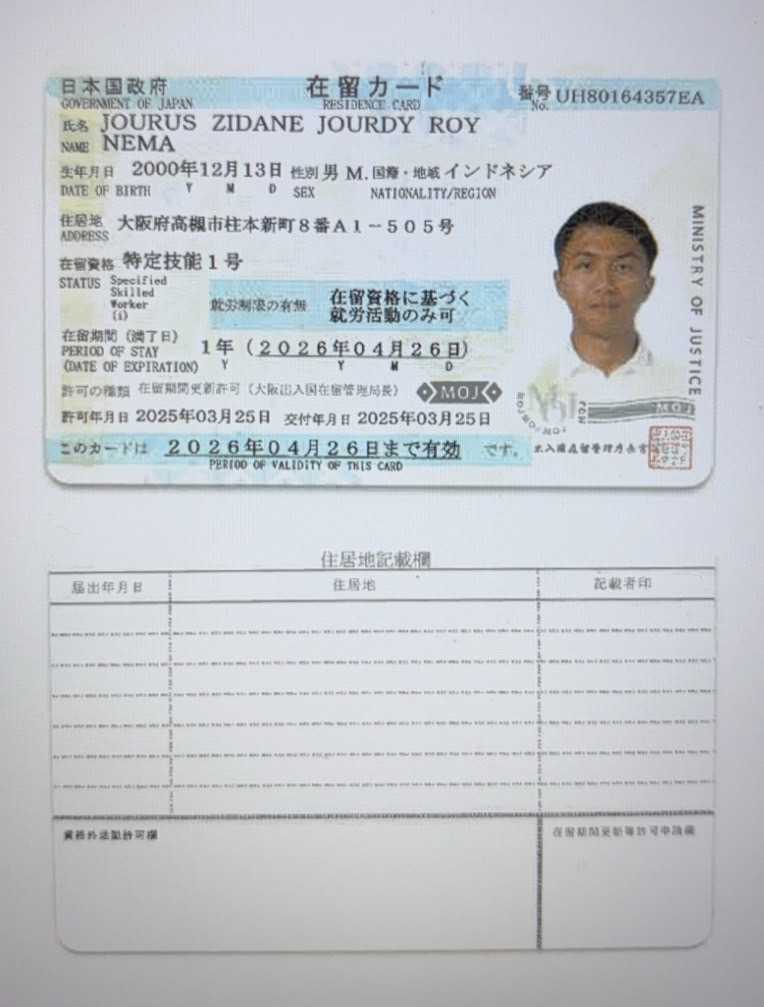 日本国政府 在留カード 番号 UH80164357EA
GOVERNMENT OF JAPAN RESIDENCE CARD No.
氏名 JOURUS ZIDANE JOURDY ROY
NAME NEMA
生年月日 2000年12月13日 性別 男 M. 国籍・地域 インドネシア
DATE OF BIRTH Y M D SEX NATIONALITY/REGION
住居地 大阪府高槻市柱本新町8番A1-505号
ADDRESS
在留資格 特定技能1号
STATUS Specified
Skilled
Worker
(i)
就労制限の有無 在留資格に基づく
就労活動のみ可
在留期間(満了日)
PERIOD OF STAY 1年(2026年04月26日)
(DATE OF EXPIRATION) Y Y M D
許可の種類 在留期間更新許可(大阪出入国在留管理局長)
MOJ
許可年月日 2025年03月25日 交付年月日 2025年03月25日
このカードは 2026年04月26日まで有効 です。
PERIOD OF VALIDITY OF THIS CARD
MINISTRY OF JUSTICE
MOJ
住居地記載欄
届出年月日 住居地 記載者印
資格外活動許可欄 在留期間更新等許可申請欄